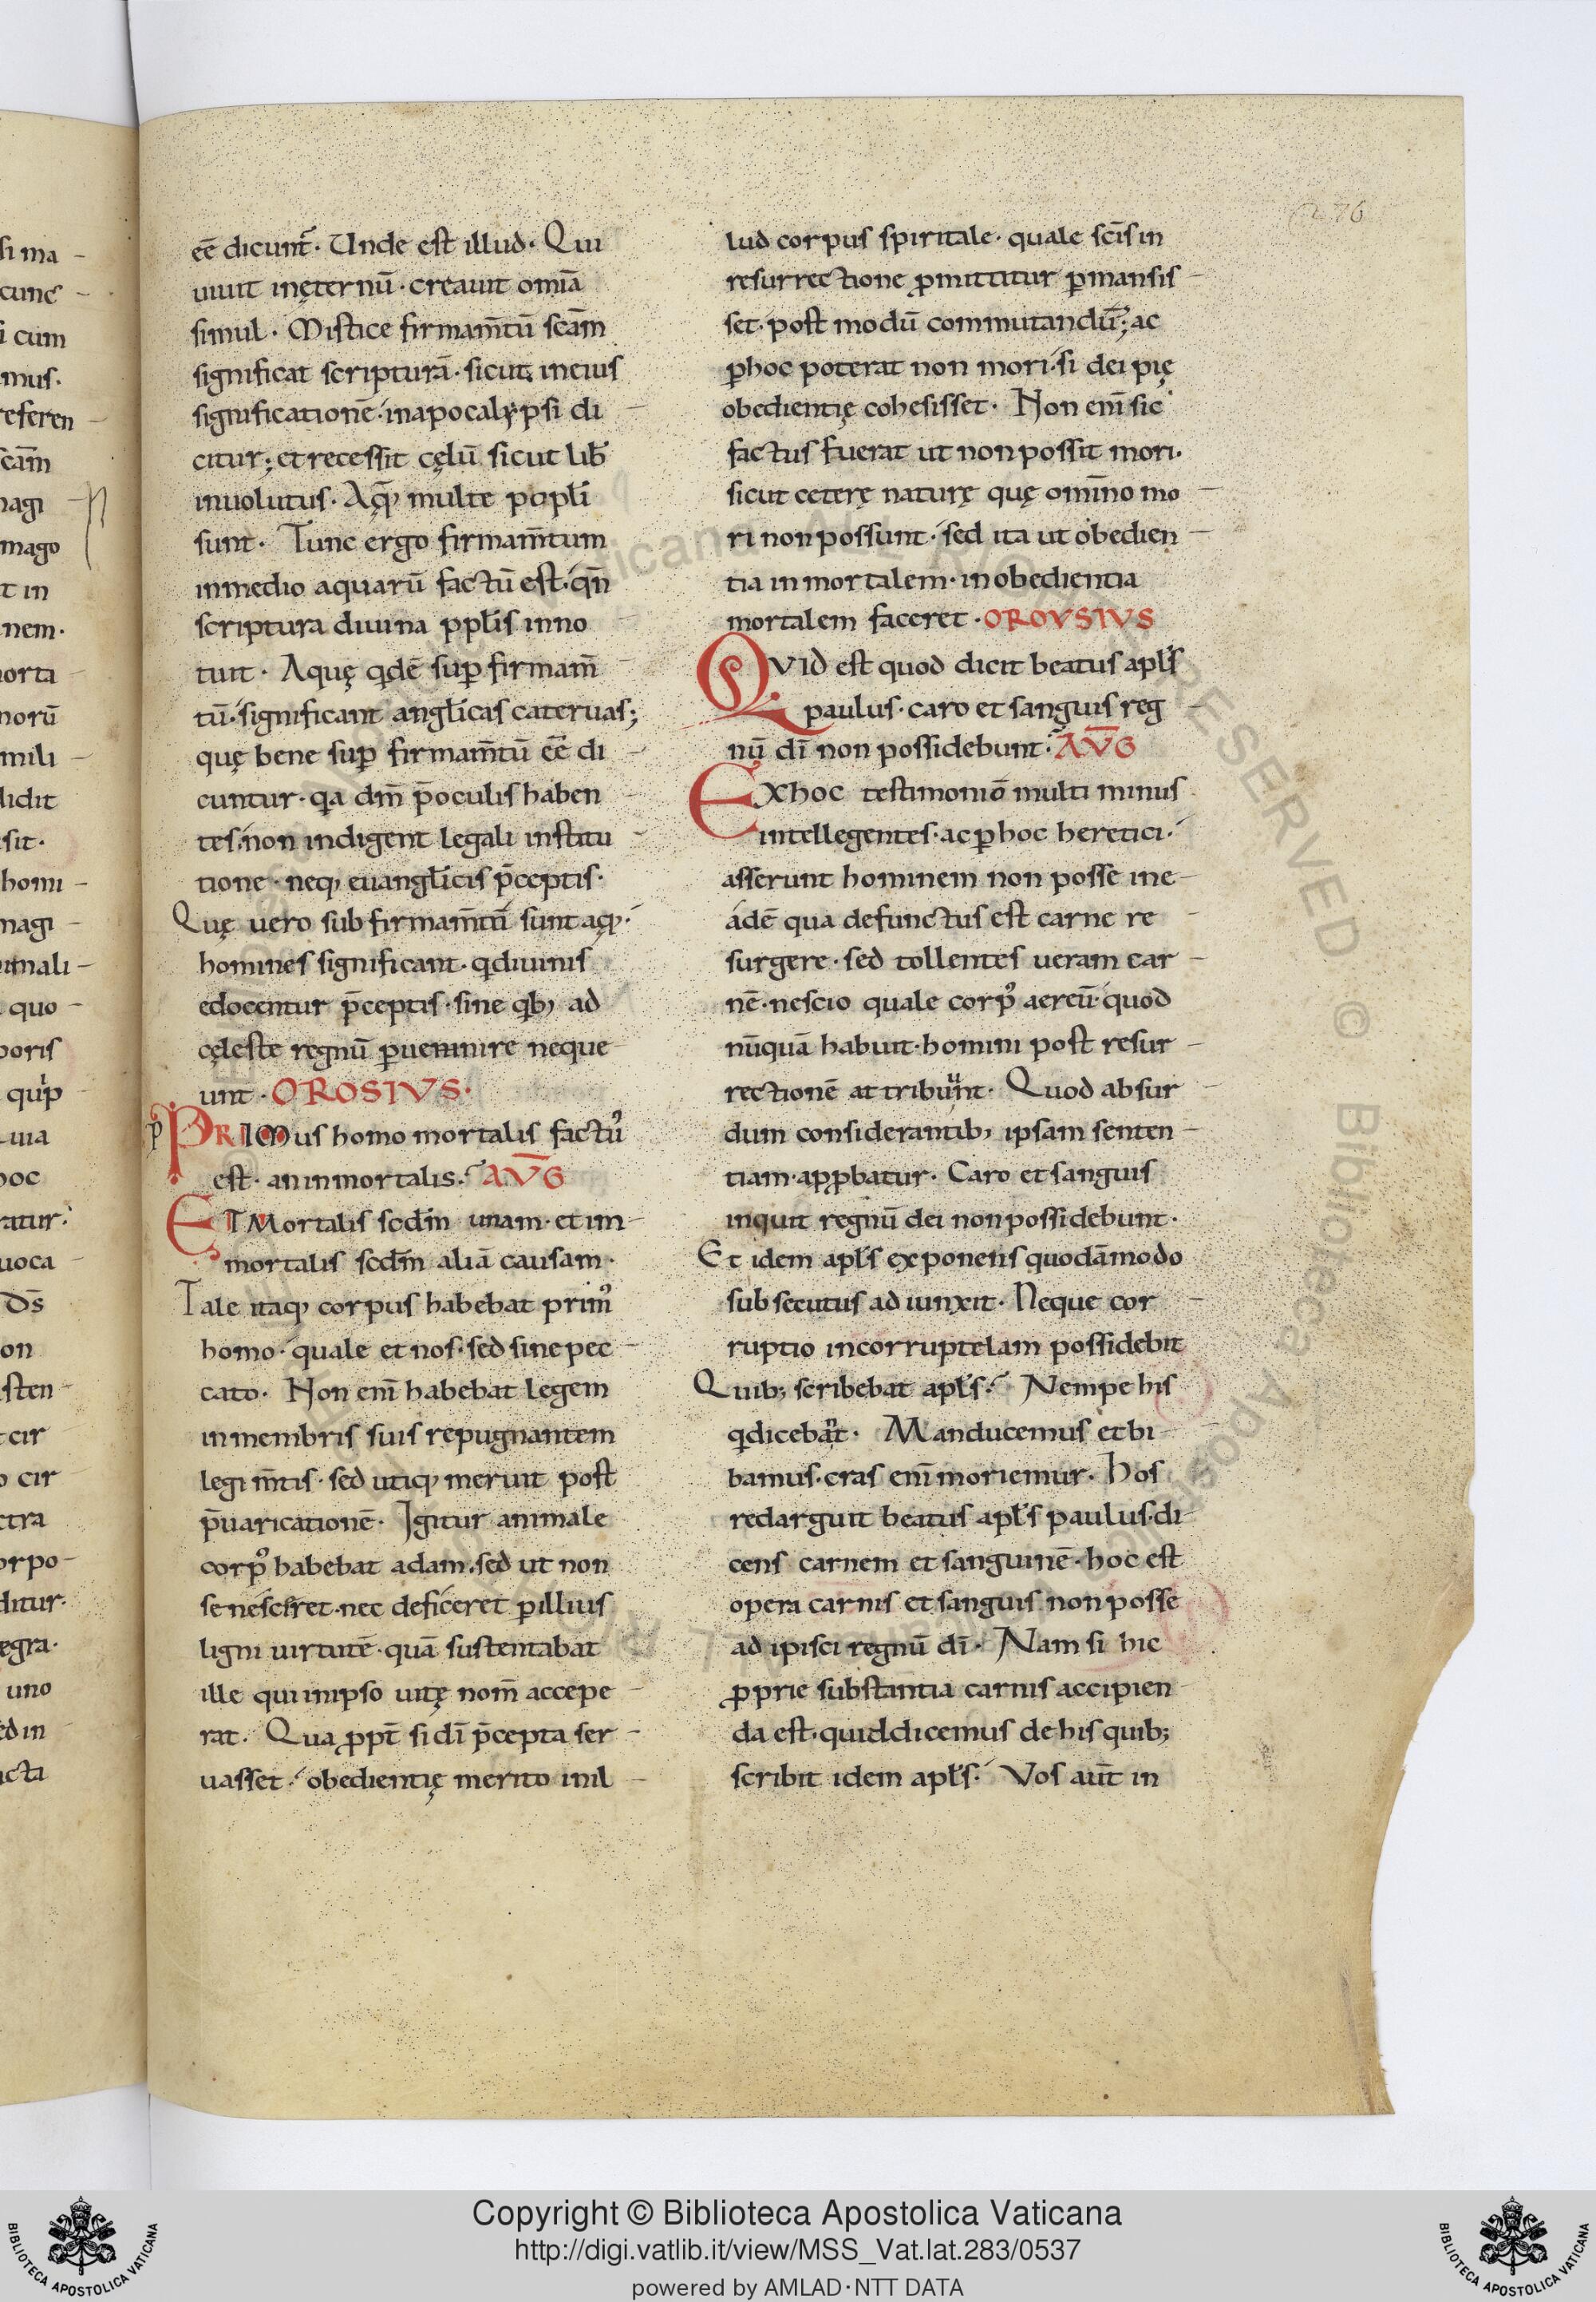 276
eē dicunt᷑. Unde est illud. Qui
uiuit inęternū. creauit omīa
simul. Mistice firmam̄tū scām
significat scripturā. sicut ineius
significationē. inapocalypsi di
citur; et recessit cęlū sicut lib̄
inuolutus. Aqꝫ multe popl̄i
sunt. Tunc ergo firmam̄tum
inmedio aquarū factū est. qn̄
scriptura diuina ppl̄is inno
tuit. Aquę qdē suꝑ firmam̄
tū. significant angl̄icas cateruas;
quę bene suꝑ firmam̄tū eē di
cuntur. qa dm̄ p̄oculis haben
tes. non indigent legali institu
tione. neqꝫ euangl̄icis p̄ceptis.
Quę uero sub firmam̄tū sunt aqꝫ.
homines significant. qdiuinis
edocentur p̄ceptis. sine qbꝫ ad
cęleste regnū ꝑuenire neque
unt. OROSIVS.
p PRIMus homo mortalis factꝰ
est. aninmortalis. AVḠ
ET Mortalis scdm̄ unam. et im
mortalis scdm̄ aliā causam.
Tale itaqꝫ corpus habebat primꝰ
homo. quale et nos. sed sinepec
cato. Non enī habebat legem
inmembris suis repugnantem
legi m̄tis. sed utiqꝫ meruit post
p̄uaricationē. Igitur animale
corpꝰ habebat adam. sed ut non
senesc&ret. nec deficeret ꝑillius
ligni uirtutē. quā sustentabat
ille qui inipso uitę nom̄ accepe
rat. Qua ꝓpt̄ si dī p̄cepta ser
uasset. obedientię merito inil
lud corpus spiritale. quale scīs in
resurrectione ꝓmittitur ꝑmansis
set. post modū commutandū; ac
ꝑhoc poterat non mori. si dei pię
obedientię cohesisset. Non enī sic
factus fuerat ut nonpossit mori.
sicut ceterę naturę quę omīno mo
ri nonpossunt. sed ita ut obedien
tia inmortalem. inobedientia
mortalem faceret. OROVSIVS
QVID est quod dicit beatus apl̄s
paulus. caro et sanguis reg
nū dī non possidebunt. AVḠ
EXhoc testimoniō multi minus
intellegentes. ac ꝑhoc heretici.
asserunt hominem non posse ine
adē qua defunctus est carne re
surgere. sed tollentes ueram car
nē. nescio quale corpꝰ aereū. quod
nūquā habuit. homini post resur
rectionē attribuunt. Quod absur
dum considerantibꝫ ipsam senten
tiam. apꝓbatur. Caro et sanguis
inquit regnū dei nonpossidebunt.
Et idem apl̄s exponens quodāmodo
subsecutus adiunxit. Neque cor
ruptio incorruptelam possidebit
Quibꝫ scribebat apl̄s. Nempe his
qdicebant. Manducemus etbi
bamus. cras enī moriemur. Hos
redarguit beatus apl̄s paulus. di
cens carnem et sanguinē. hoc est
opera carnis et sanguis non posse
ad ipisci regnū dī. Nam si hic
ꝓprie substantia carnis accipien
da est. quiddicemus de his quibꝫ
scribit idem apl̄s. Vos aut̄ in
Copyright © Biblioteca Apostolica Vaticana
http://digi.vatlib.it/view/MSS_Vat.lat.283/0537
powered by AMLAD·NTT DATA